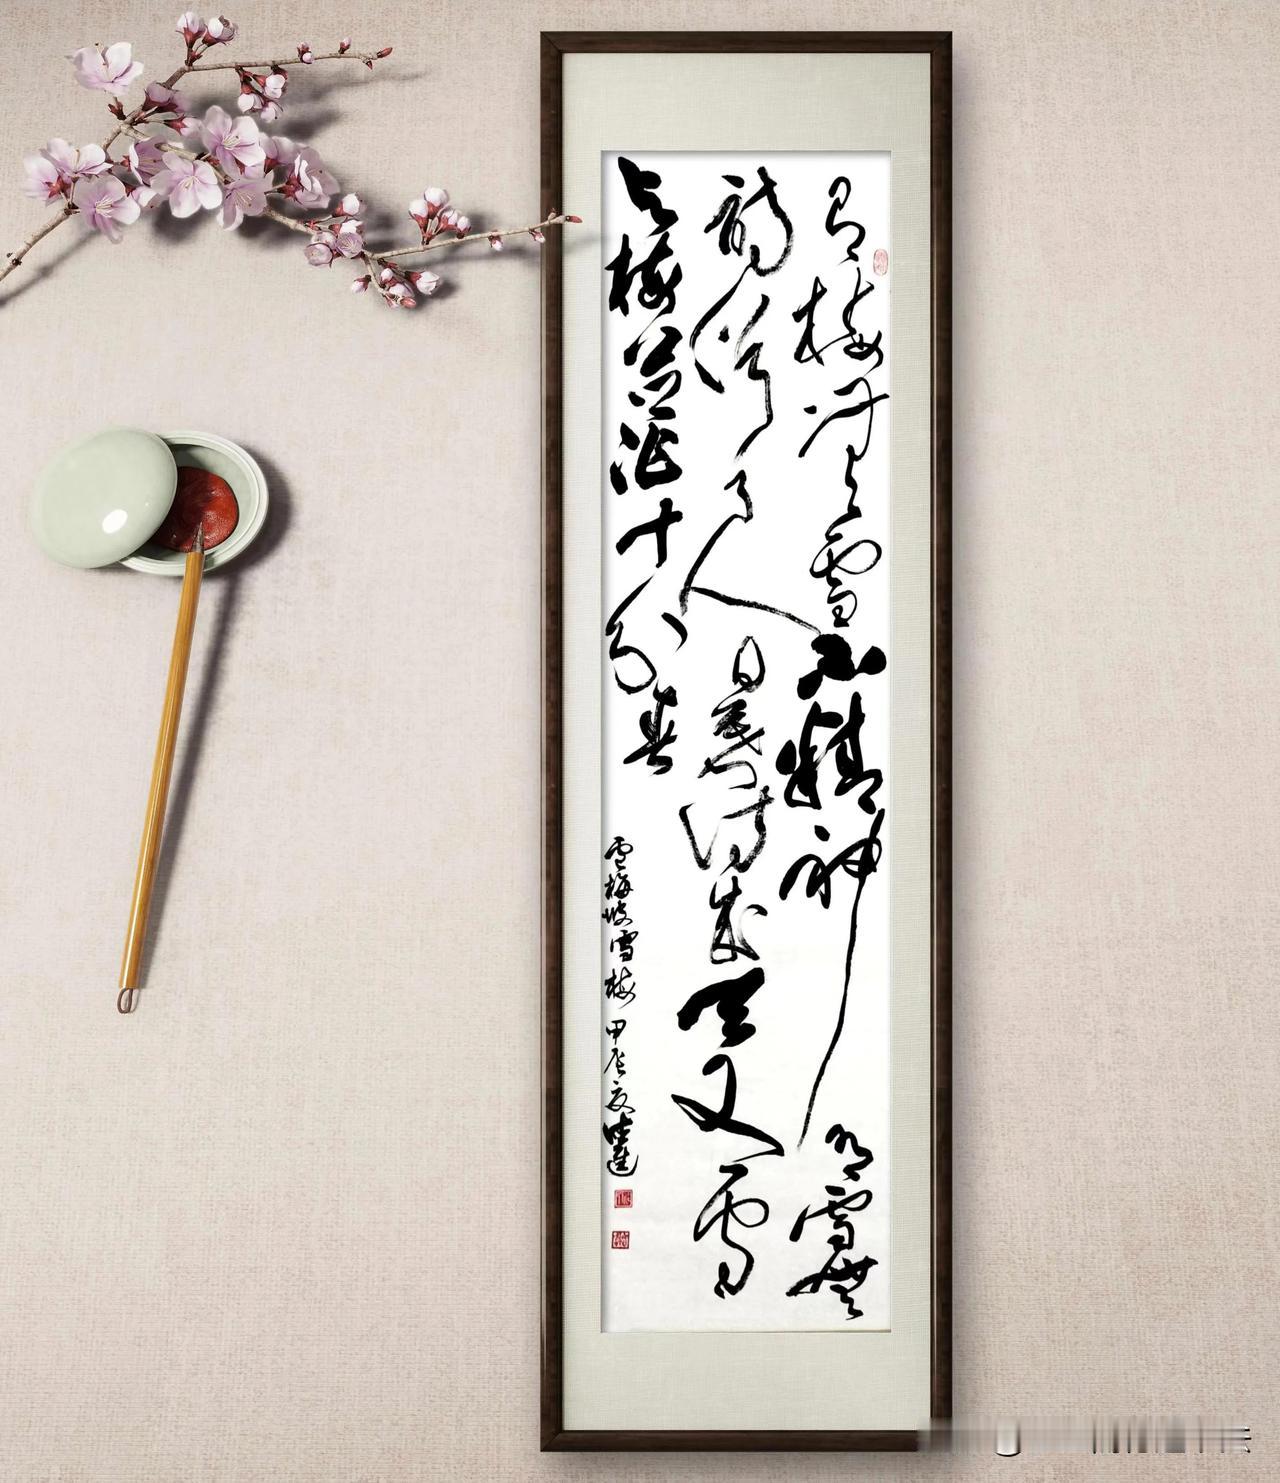 有梅無雪不精神有雪無
詩俗了人日暮詩成天又雪
与梅並作十分春
盧梅坡雪梅甲辰夏